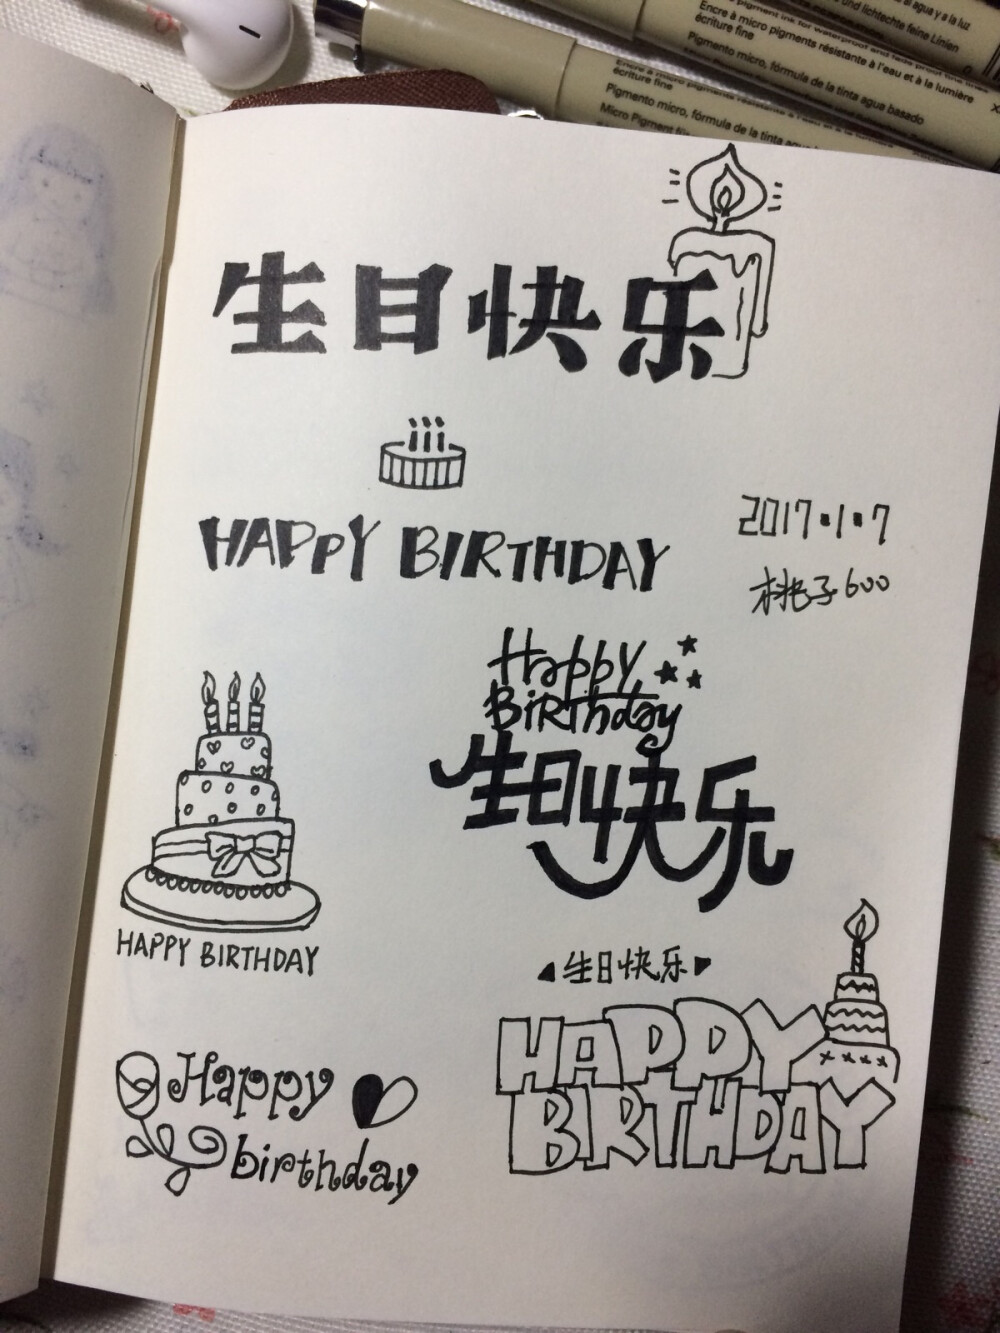 Encre à micro pigments résistante à l'eau et à la lumière
écriture fine
Pigmento micro, fórmula de tinta agua basado
écriture fine
Pigmento micro, fórmula de la tinta agua basado
生日快乐
HAPPY BIRTHDAY
2017·1·7
桃子600
Happy
BiRThday
生日快乐
HAPPY BIRTHDAY
生日快乐
HAPPY
BIRTHDAY
Happy
birthday